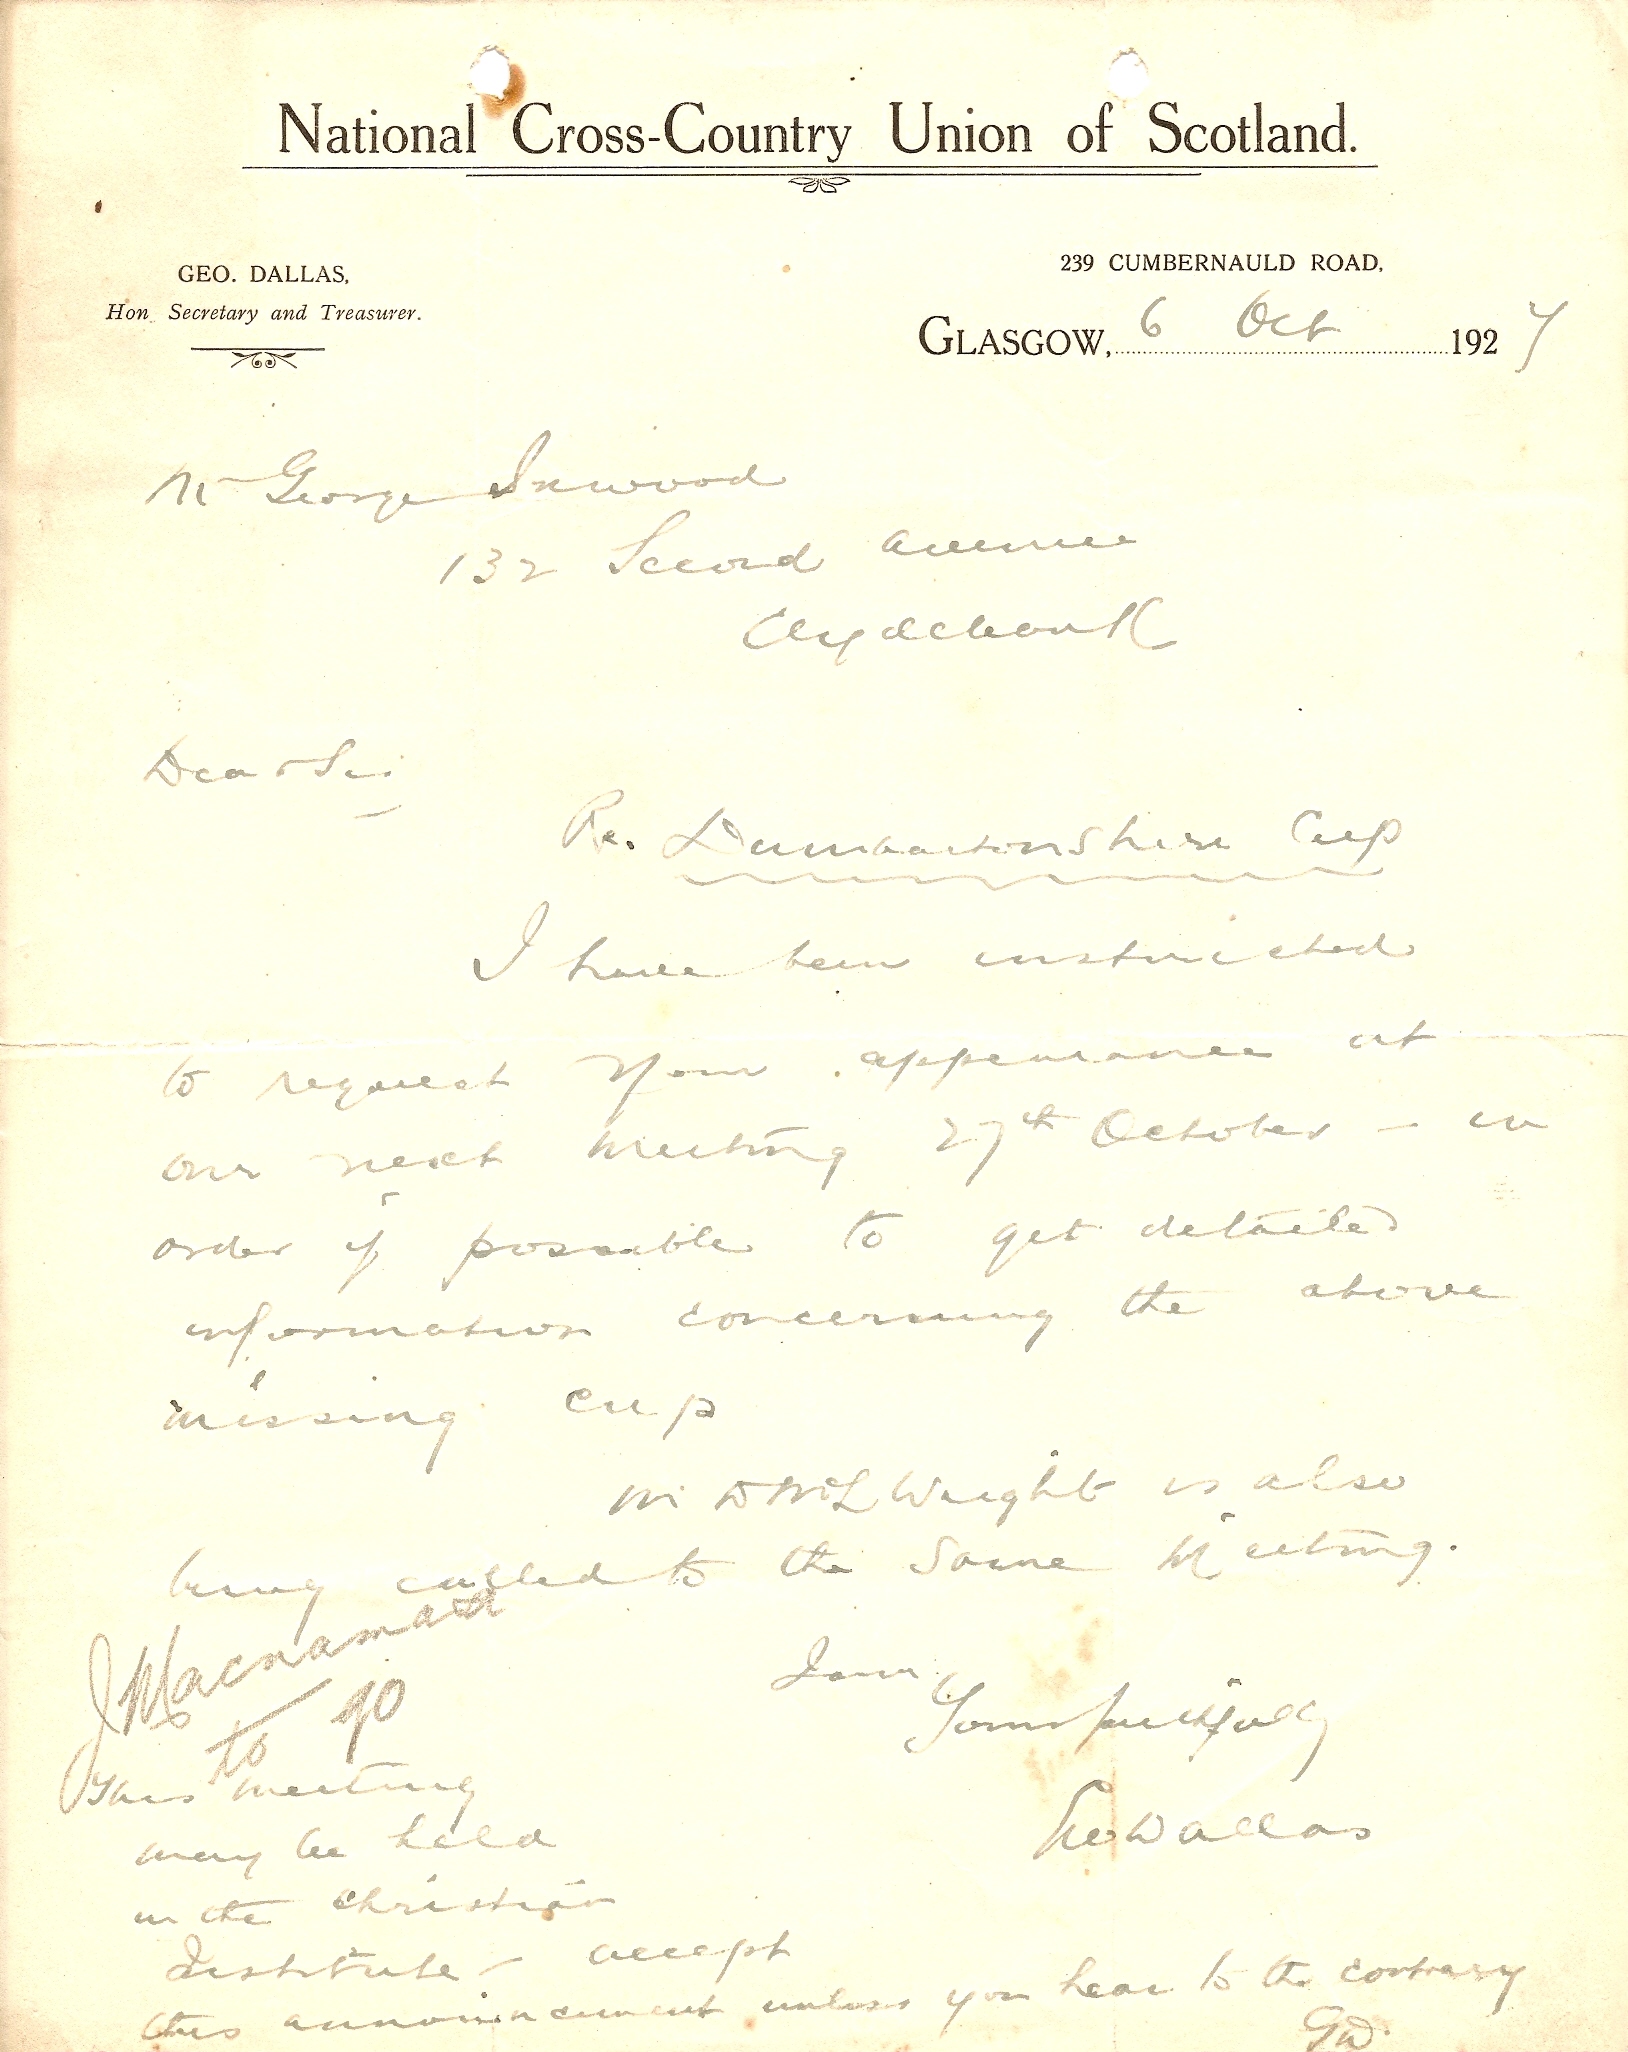 National Cross-Country Union of Scotland.
GEO. DALLAS,
Hon. Secretary and Treasurer.
239 CUMBERNAULD ROAD,
GLASGOW, 6 Oct 1927
Mr George Inwood
132 Second Avenue
Clydebank
Dear Sir
Re. Dumbartonshire Cup
I have been instructed
to request your appearance at
our next Meeting 27th October – in
order if possible to get detailed
information concerning the above
missing cup
Mr D McL Wright is also
being called to the same Meeting.
I am
Yours faithfully
Geo Dallas
J Macnamara
to go
This meeting
may be held
in the Christian
Institute – accept
this announcement unless you hear to the contrary
GD.